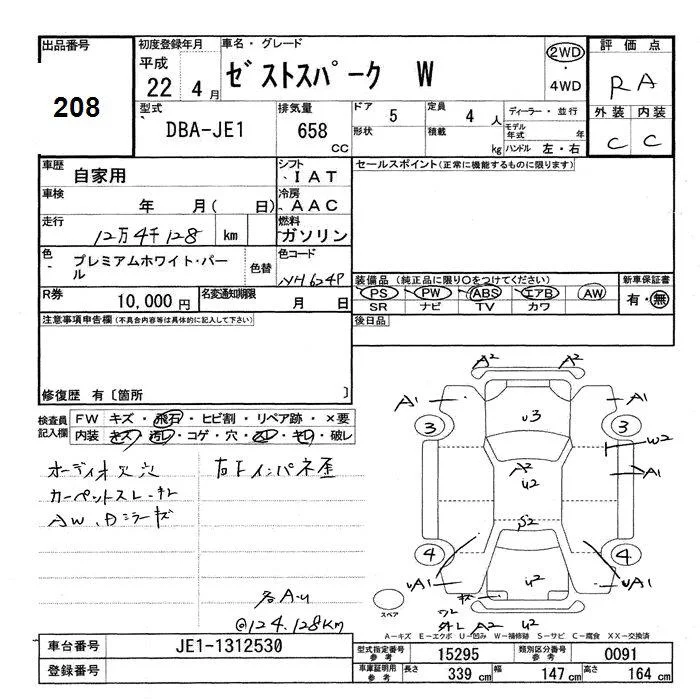 出品番号 208
初度登録年月 平成 22 年 4 月
車名・グレード ゼストスパーク W
2WD ・ 4WD
評価点 RA
型式 DBA-JE1
排気量 658 CC
ドア 5 定員 4 人
形状 積載 kg
ディーラー・並行
モデル年式 年
ハンドル 左・右
外装 内装
C C
車歴 自家用
シフト IAT
車検 年 月( 日)
冷房 AAC
走行 12万4千128 km
燃料 ガソリン
色 プレミアムホワイト・パール 色替
色コード NH624P
R券 10,000円 名変通知期限 月 日
セールスポイント(正常に機能するものに限ります)
装備品 (純正品に限り○をつけてください)
PS PW ABS エアB AW
SR ナビ TV カワ
新車保証書 有・無
後日品
注意事項申告欄(不具合内容等は具体的に記入して下さい)
修復歴 有〔箇所 〕
検査員記入欄
FW キズ・飛石・ヒビ割・リペア跡・×要
内装 キズ・汚レ・コゲ・穴・スレ・キレ・破レ
オーディオ欠 穴
カーペットスレ・キレ
AW、Dミラーキズ
右下インパネ歪
各A・u
@124.128Km
A2 A2
A1 A1
3 U3 3
W2
A2 A1
U2
S2
4 4
UA1 U2 UA1
キズ
ワレ
外レ A2 U2
スペア
A-キズ E-エクボ U-凹み W-補修跡 S-サビ C-腐食 XX-交換済
車台番号 JE1-1312530
登録番号
型式指定番号 参考 15295 類別区分番号 参考 0091
車庫証明用 参考 長さ 339 cm 幅 147 cm 高さ 164 cm